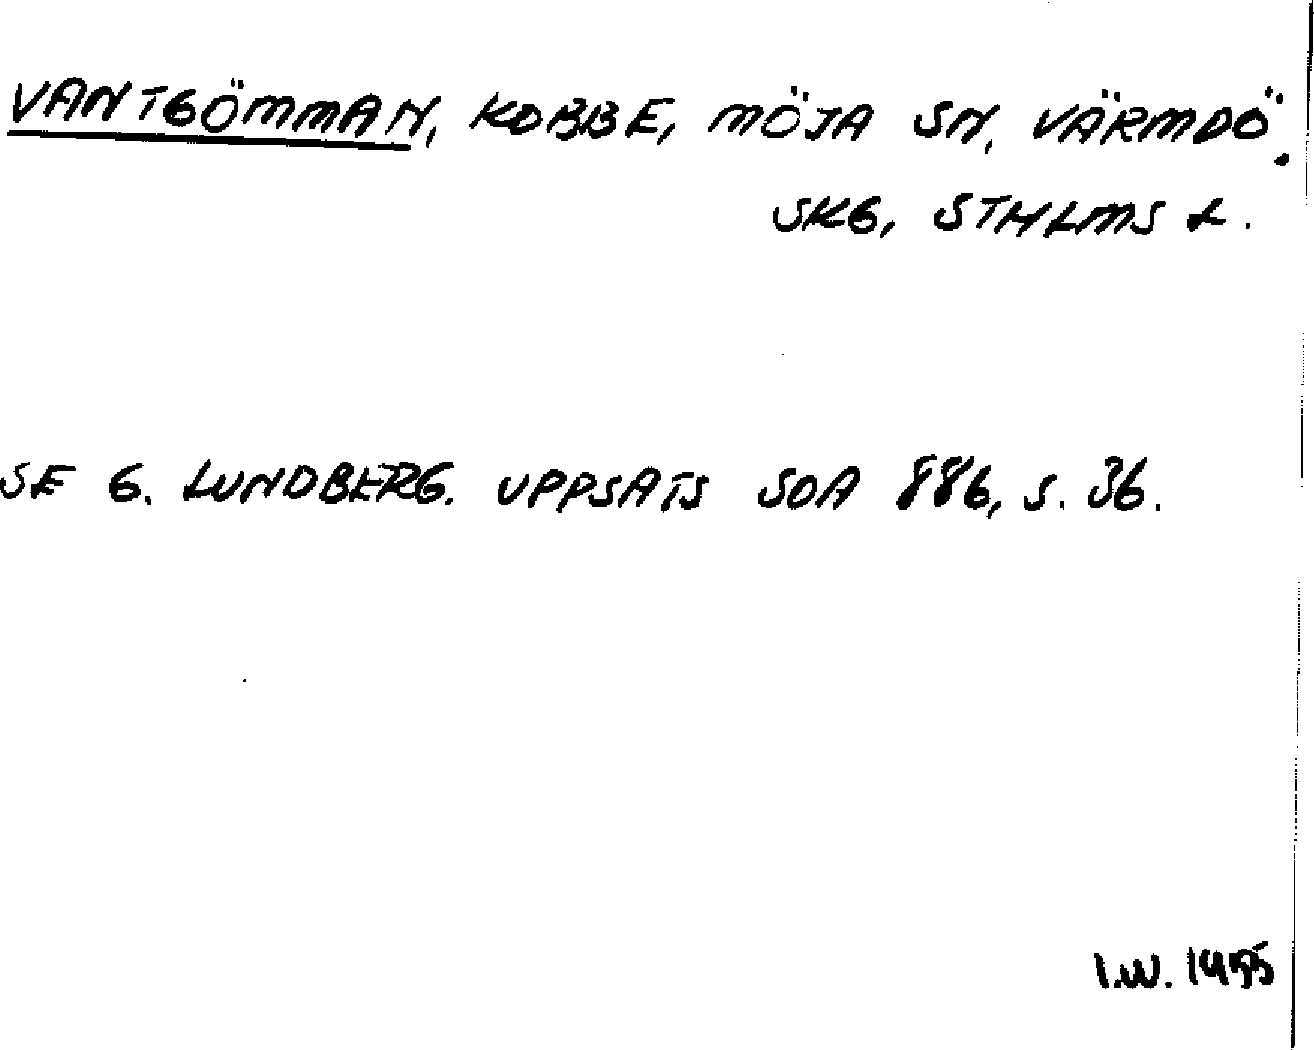 VANTGÖMMAN, KOBBE, MÖJA SN, VÄRMDÖ.
SKG, STHLMS L.
SE G. LUNDBERG. UPPSATS SOA 886, S. 36.
I.W. 1955